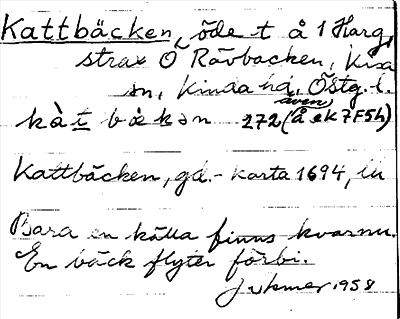 Kattbäcken, öde t å 1 Harg,
strax Ö Rävbacken, Kisa
sn, Kinda hd, Östg. l.
kàt bɛkən 272 (även å ek 7F5h)
Kattbäcken, gd. - karta 1694, LU
Bara en källa finns kvar nu.
En bäck flyter förbi.
1958